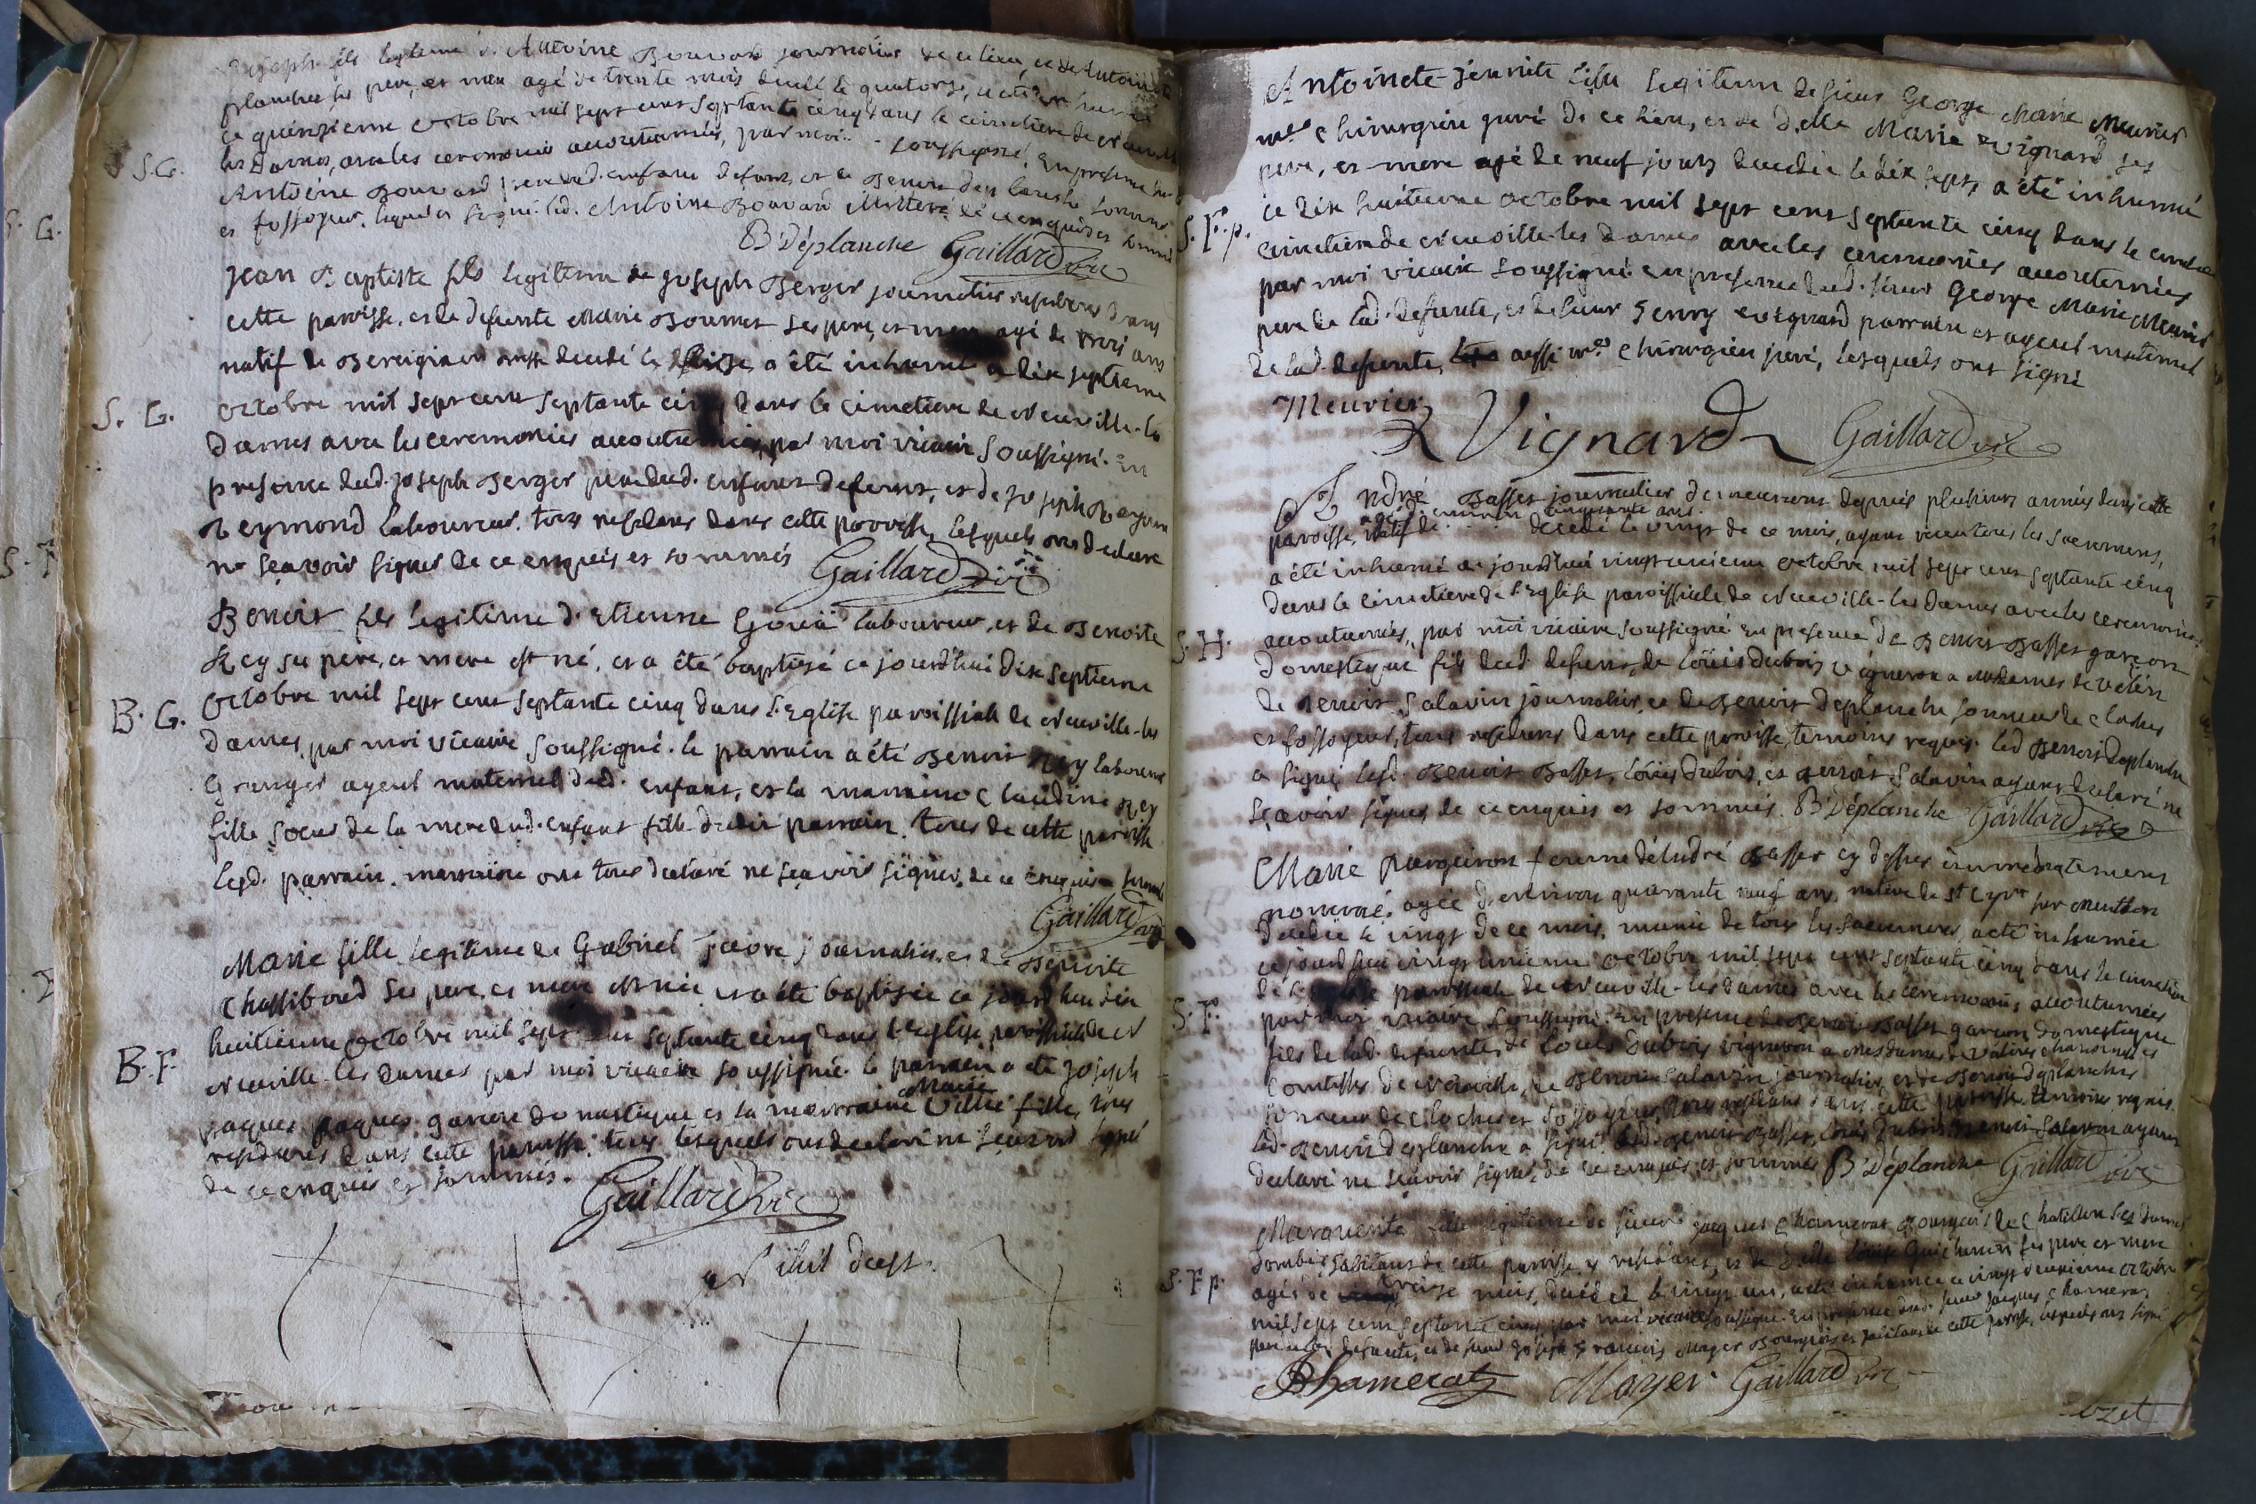 Joseph fils legitime d. Antoine Bouvard journalier de ce lieu, et de Antoinette
planches ses pere, et mere agé de trente mois decedé le quatorze, a été inhumé
ce quinzieme octobre mil sept cent septante cinq dans le cimetiere de
les Dames, avec les ceremonies accoutumées, par moi soussigné, en presence
S.G.
Antoine Bouvard pere dud. enfant defunt, et de Benoit
et fossoyeur, lequel a signé led. Antoine Bouvard illitteré de ce enquis et sommé
B Déplanche Gaillard vic
Jean Baptiste fils legitime de Joseph Berger journalier residant dans
cette paroisse, et de defunte Marie Bournet ses pere, et mere agé de trois ans
natif de decedé le seize, a été inhumé ce dix septieme
S. G.
octobre mil sept cent septante cinq dans le cimetiere de Neuville-les
Dames avec les ceremonies accoutumées, par moi vicaire soussigné. En
presence dud. Joseph Berger pere dud. enfant defunt, et de Joseph
Reymond laboureur. tous residans dans cette paroisse, lesquels ont declaré
ne sçavoir signer de ce enquis et sommés Gaillard vic
Benoit fils legitime d. Etienne Goiia laboureur, et de Benoite
Rey ses pere, et mere est né, et a été baptisé ce jourd'hui dix septieme
B. G.
octobre mil sept cent septante cinq dans l'Eglise paroissiale de Neuville-les
Dames, par moi vicaire soussigné. le parrain a été Benoit Rey laboureur
Granger ayeul maternel dud. enfant, et la marraine Claudine Rey
fille soeur de la mere dud. enfant fille dudit parrain. tous de cette paroisse
lesd. parrain. marraine ont tous declaré ne sçavoir signer, de ce enquis et sommés
Gaillard vic
Marie fille legitime de Gabriel favre journalier, et de Benoite
Chassiboud ses pere, et mere est née, et a été baptisée ce jourd'hui dix
huitieme octobre mil sept cent septante cinq dans l'Eglise paroissiale de
B. F.
Neuville-les Dames par moi vicaire soussigné. le parrain a été Joseph
paques paques garcon domestique et la marraine Marie Villié fille, tous
residans dans cette paroisse. tous lesquels ont declaré ne sçavoir signer
de ce enquis et sommés. Gaillard vic
Nihil deest.
Antoinete-Jeannete fille legitime de sieur George Marie Meunier
me Chirurgien juré de ce lieu, et de d.elle Marie Vignard ses
pere, et mere agé de neuf jours decedée le dix sept, a été inhumée
ce dix huitieme octobre mil sept cent septante cinq dans le
S. F. p.
cimetiere de Neuville-les Dames avec les ceremonies accoutumées
par moi vicaire soussigné. en presence dud. sieur George Marie Meunier
pere de lad. defunte, et de sieur Henry Vignard parrain et ayeul maternel
de lad. defunte, aussi me Chirurgien juré, lesquels ont signé
Meunier Vignard Gaillard vic
André Basset journalier demeurant depuis plusieurs années dans cette
paroisse, natif de agé d'environ cinquante ans decedé le vingt de ce mois, ayant reçeu tous les sacremens,
a été inhumé ce jourd'hui vingt unieme octobre mil sept cent septante cinq
dans le cimetiere de l'Eglise paroissiale de Neuville-les Dames avec les ceremonies
S. H.
accoutumées, par moi vicaire soussigné en presence de Benoit Basset garçon
domestique fils dud. defunt, de Loüis Dubois vigneron a Mesdames de
de Benoit Salavin journalier, et de Benoit Deplanche sonneur de cloches
et fossoyeur, tous residans dans cette paroisse, temoins requis. led. Benoit Deplanche
a signé lesd. Benoit Basset, Loüis Dubois, et Benoit Salavin ayant declaré ne
sçavoir signer de ce enquis et sommés. B Déplanche Gaillard vic
Marie femme d'André Basset cy dessus immediatement
nommé, agée d'environ quarante neuf ans, native de St Cyr sur Menthon
decedée le vingt de ce mois, munie de tous les sacremens, a été inhumée
ce jourd'hui vingt unieme octobre mil sept cent septante cinq dans le cimetiere
de l'Eglise paroissiale de Neuville-les Dames avec les ceremonies accoutumées
S. F.
par moi vicaire soussigné en presence de Benoit Basset garçon domestique
fils de lad. defunte, de Loüis Dubois vigneron a Mesdames de
Comtesses de Neuville, de Benoit Salavin journalier, et de Benoit Deplanche
sonneur de cloches et fossoyeur, tous residans dans cette paroisse temoins requis.
led. Benoit Deplanche a signé lesd. Benoit Basset, Loüis Dubois, Benoit Salavin ayant
declaré ne sçavoir signer, de ce enquis et sommés B Déplanche Gaillard vic
Marguerite fille legitime de sieur Jacques Chamerat Bourgeois de Chatillon les Dombes
habitant de cette paroisse y residant, et de d.elle Loüise Guichenon ses pere et mere
S. F. p.
agée de treize mois, decedée le vingt un, a été inhumée ce vingt deuxieme octobre
mil sept cent septante cinq, par moi vicaire soussigné. En presence dud. sieur Jacques Chamerat
pere de lad. defunte, et de sieur Joseph François Mayer Bourgeois et habitant de cette paroisse, lesquels ont signé
Chamerat Mayer Gaillard vic